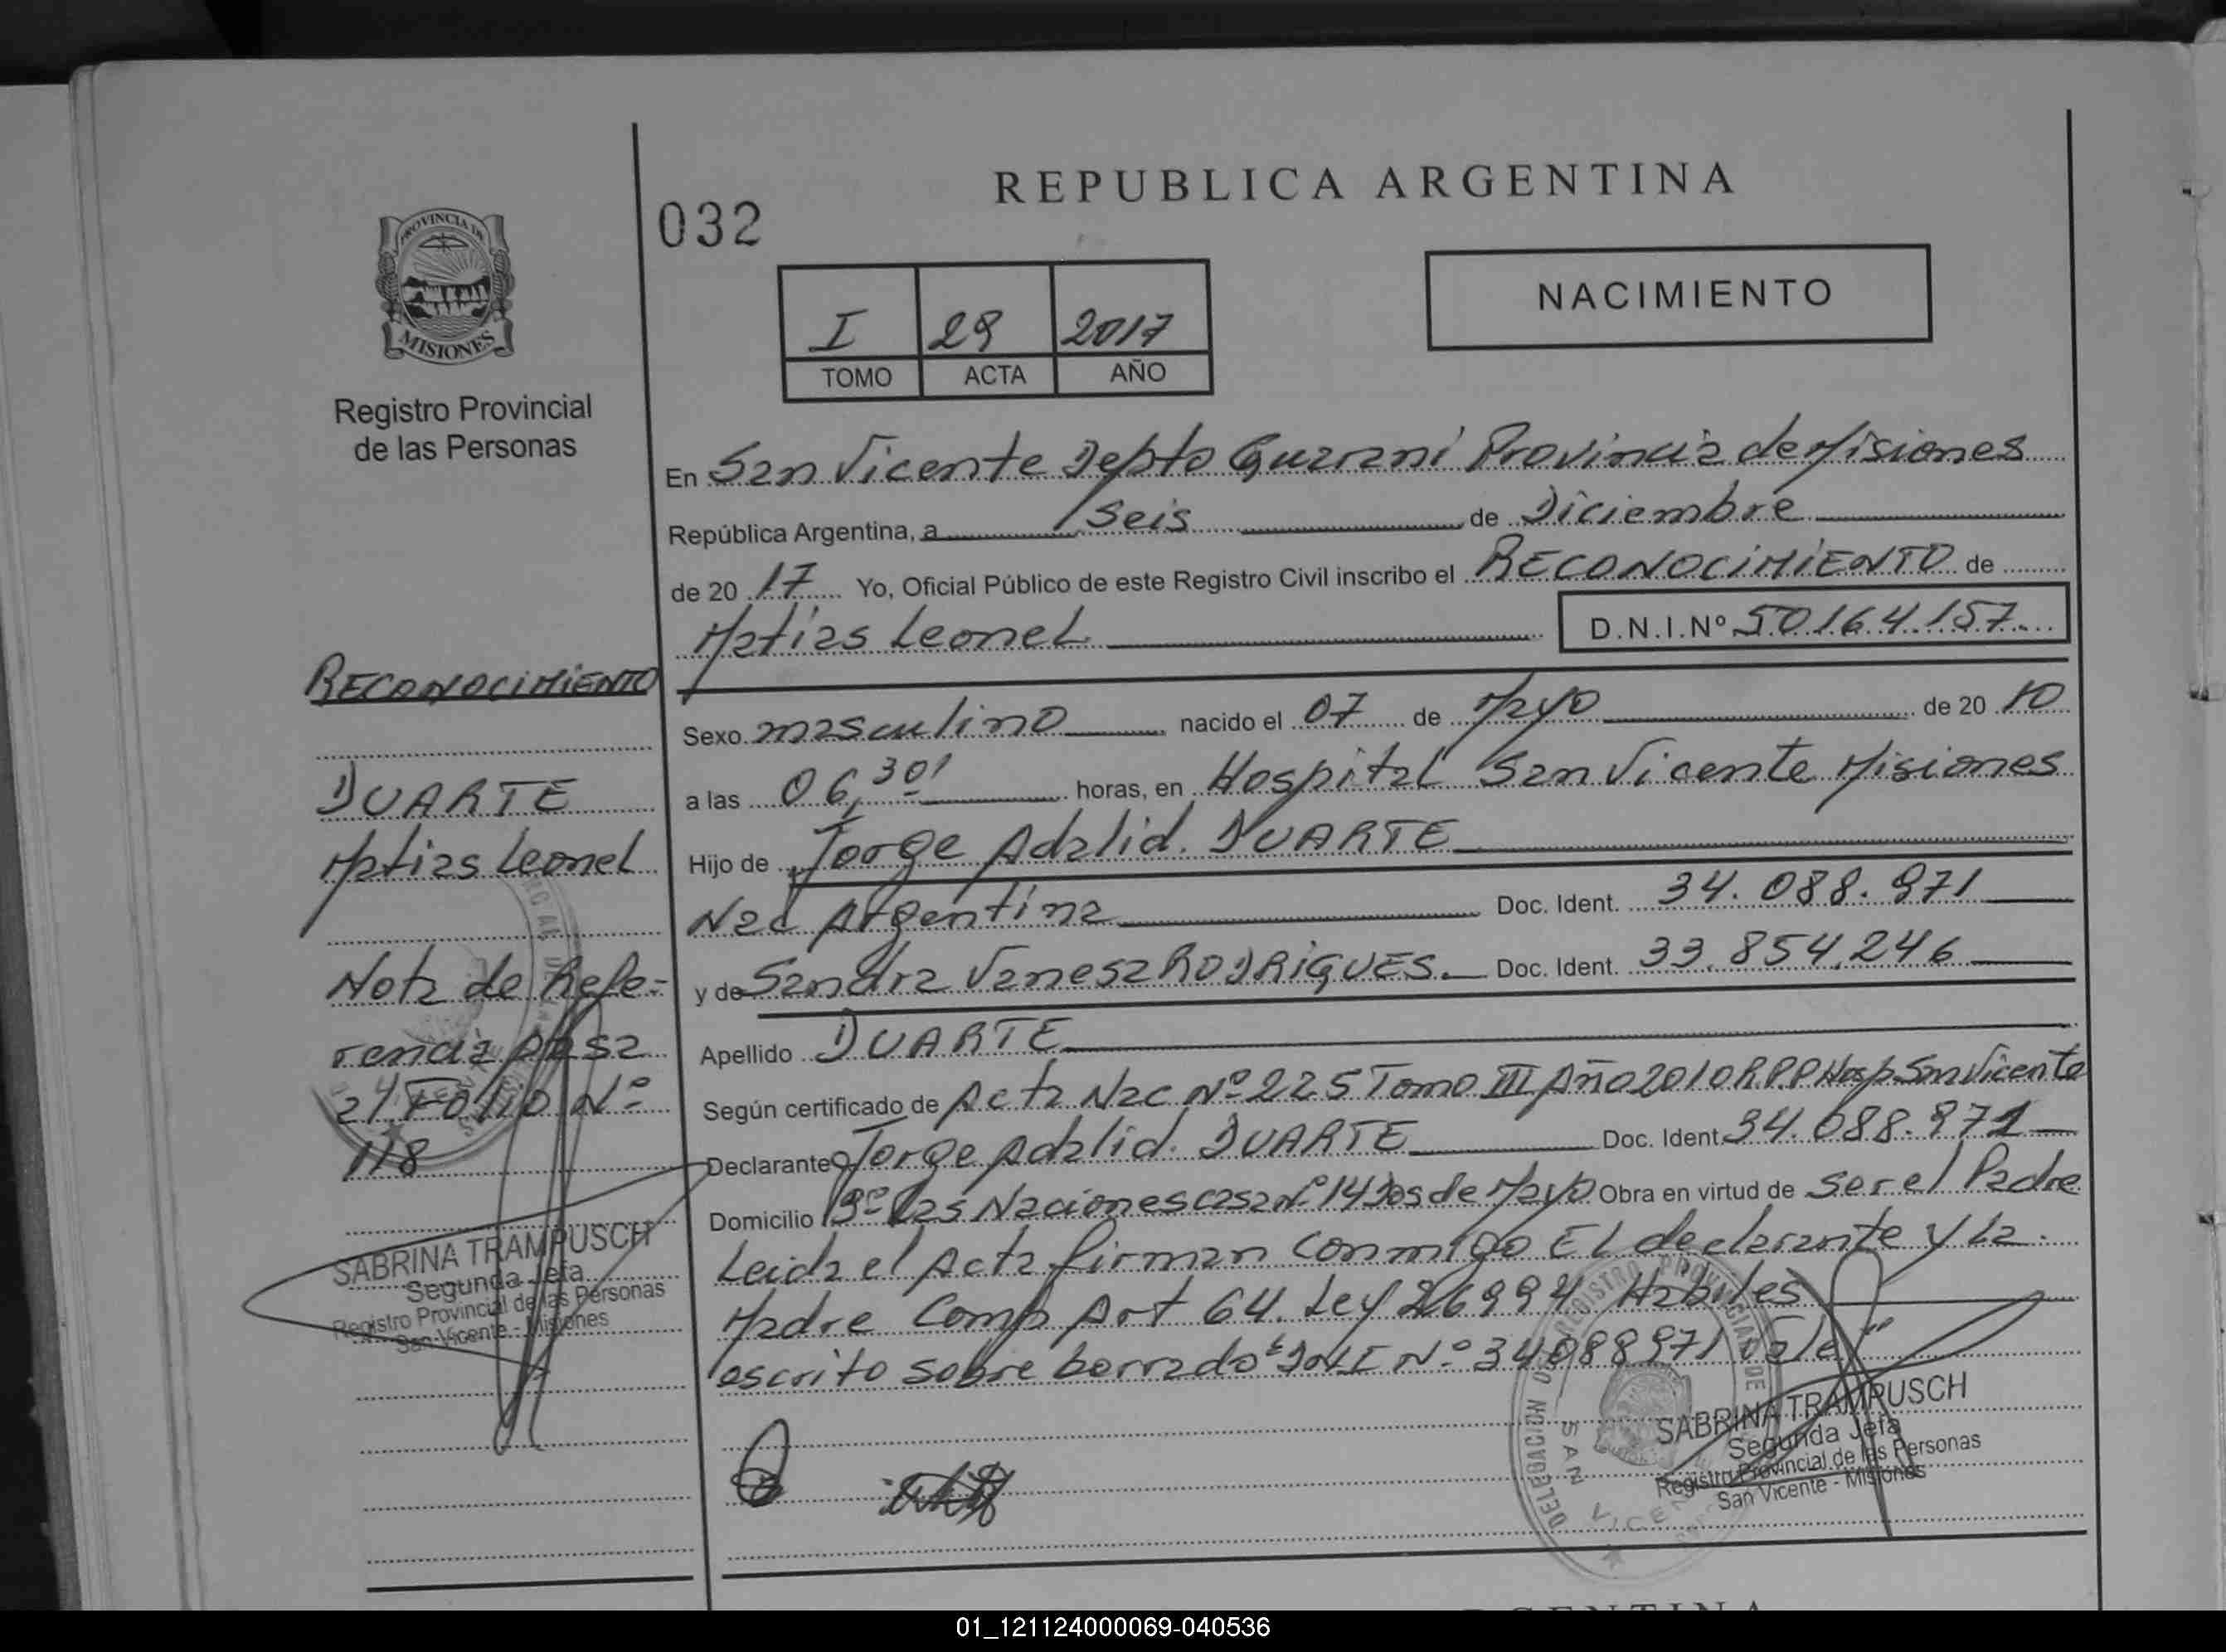 REPUBLICA ARGENTINA
032
PROVINCIA DE
MISIONES
Registro Provincial
de las Personas
NACIMIENTO
I 29 2017
TOMO ACTA AÑO
En San Vicente Depto Guarani Provincia de Misiones
República Argentina, a Seis de Diciembre
de 20 17 Yo, Oficial Público de este Registro Civil inscribo el RECONOCIMIENTO de
Matias Leonel D.N.I.Nº 50164.157
Sexo masculino nacido el 07 de Mayo de 20 10
a las 06,30' horas, en Hospital San Vicente Misiones
Hijo de Jorge Adalid. DUARTE
Nac Argentina Doc. Ident. 34.088.971
y de Sandra Vanesa RODRIGUES. Doc. Ident. 33.854.246
Apellido DUARTE
Según certificado de Acta Nac Nº 225 Tomo III Año 2010 RPP Hosp San Vicente
Declarante Jorge Adalid. DUARTE Doc. Ident 34.088.971
Domicilio Bº Las Naciones casa nº 14 Dos de Mayo Obra en virtud de ser el Padre
Leida el Acta firman conmigo El declarante y La
Madre Comp Art 64. Ley 26994 Habiles
escrito sobre borrado " Nº 34088971 Vale"
RECONOCIMIENTO
DUARTE
Matias Leonel
Nota de Refe-
rencia pasa
al Folio Nº
118
SABRINA TRAMPUSCH
Segunda Jefa
Registro Provincial de las Personas
San Vicente - Misiones
SABRINA TRAMPUSCH
Segunda Jefa
Registro Provincial de las Personas
San Vicente - Misiones
DELEGACION REGISTRO PROVINCIAL DE
SAN VICENTE
01_121124000069-040536